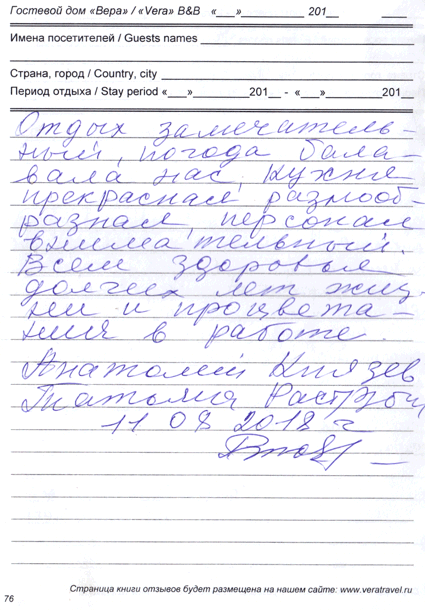 Гостевой дом «Вера» / «Vera» B&B «___»__________ 201__
Имена посетителей / Guests names
Страна, город / Country, city
Период отдыха / Stay period «___»_________201__ - «___»_________201__
Отдых замечатель-
ный, погода бала-
вала нас, кухня
прекрасная, разнооб-
разная, персонал
внимательный.
Всем здоровья
долгих лет жиз-
ни и процвета-
ния в работе.
Анатолий Князев
Татьяна
11 08 2018 г
Страница книги отзывов будет размещена на нашем сайте: www.veratravel.ru
76